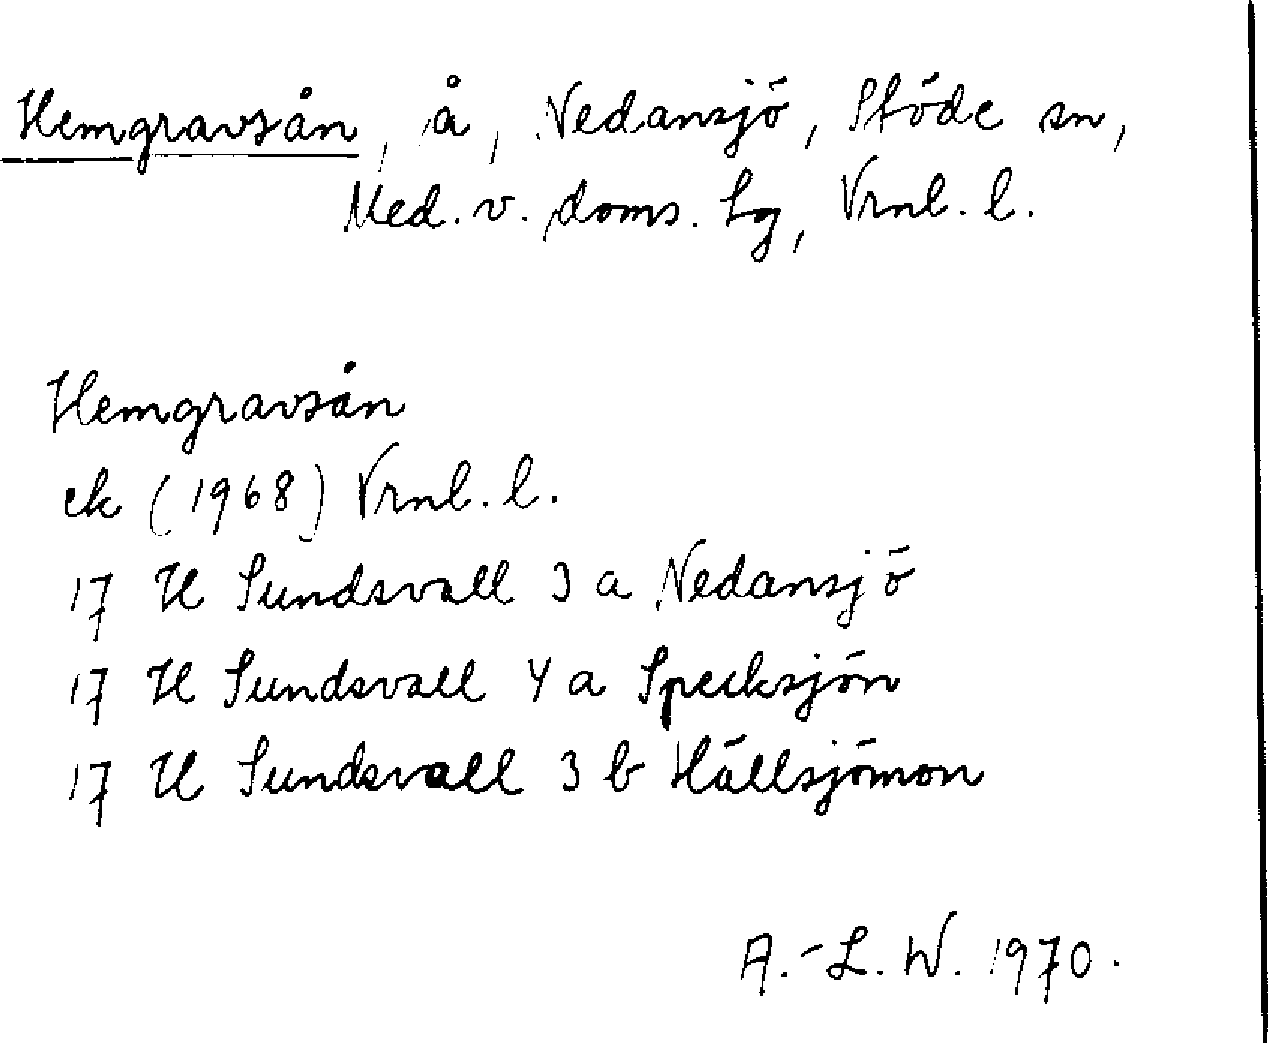 Hemgravsån, å, Nedansjö, Stöde sn,
Med. v. doms. lg, Vrnl. l.
Hemgravsån
ek (1968) Vrnl. l.
17 H Sundsvall 3 a Nedansjö
17 H Sundsvall 4 a Specksjön
17 H Sundsvall 3 b Hällsjömon
A.-L. W. 1970.